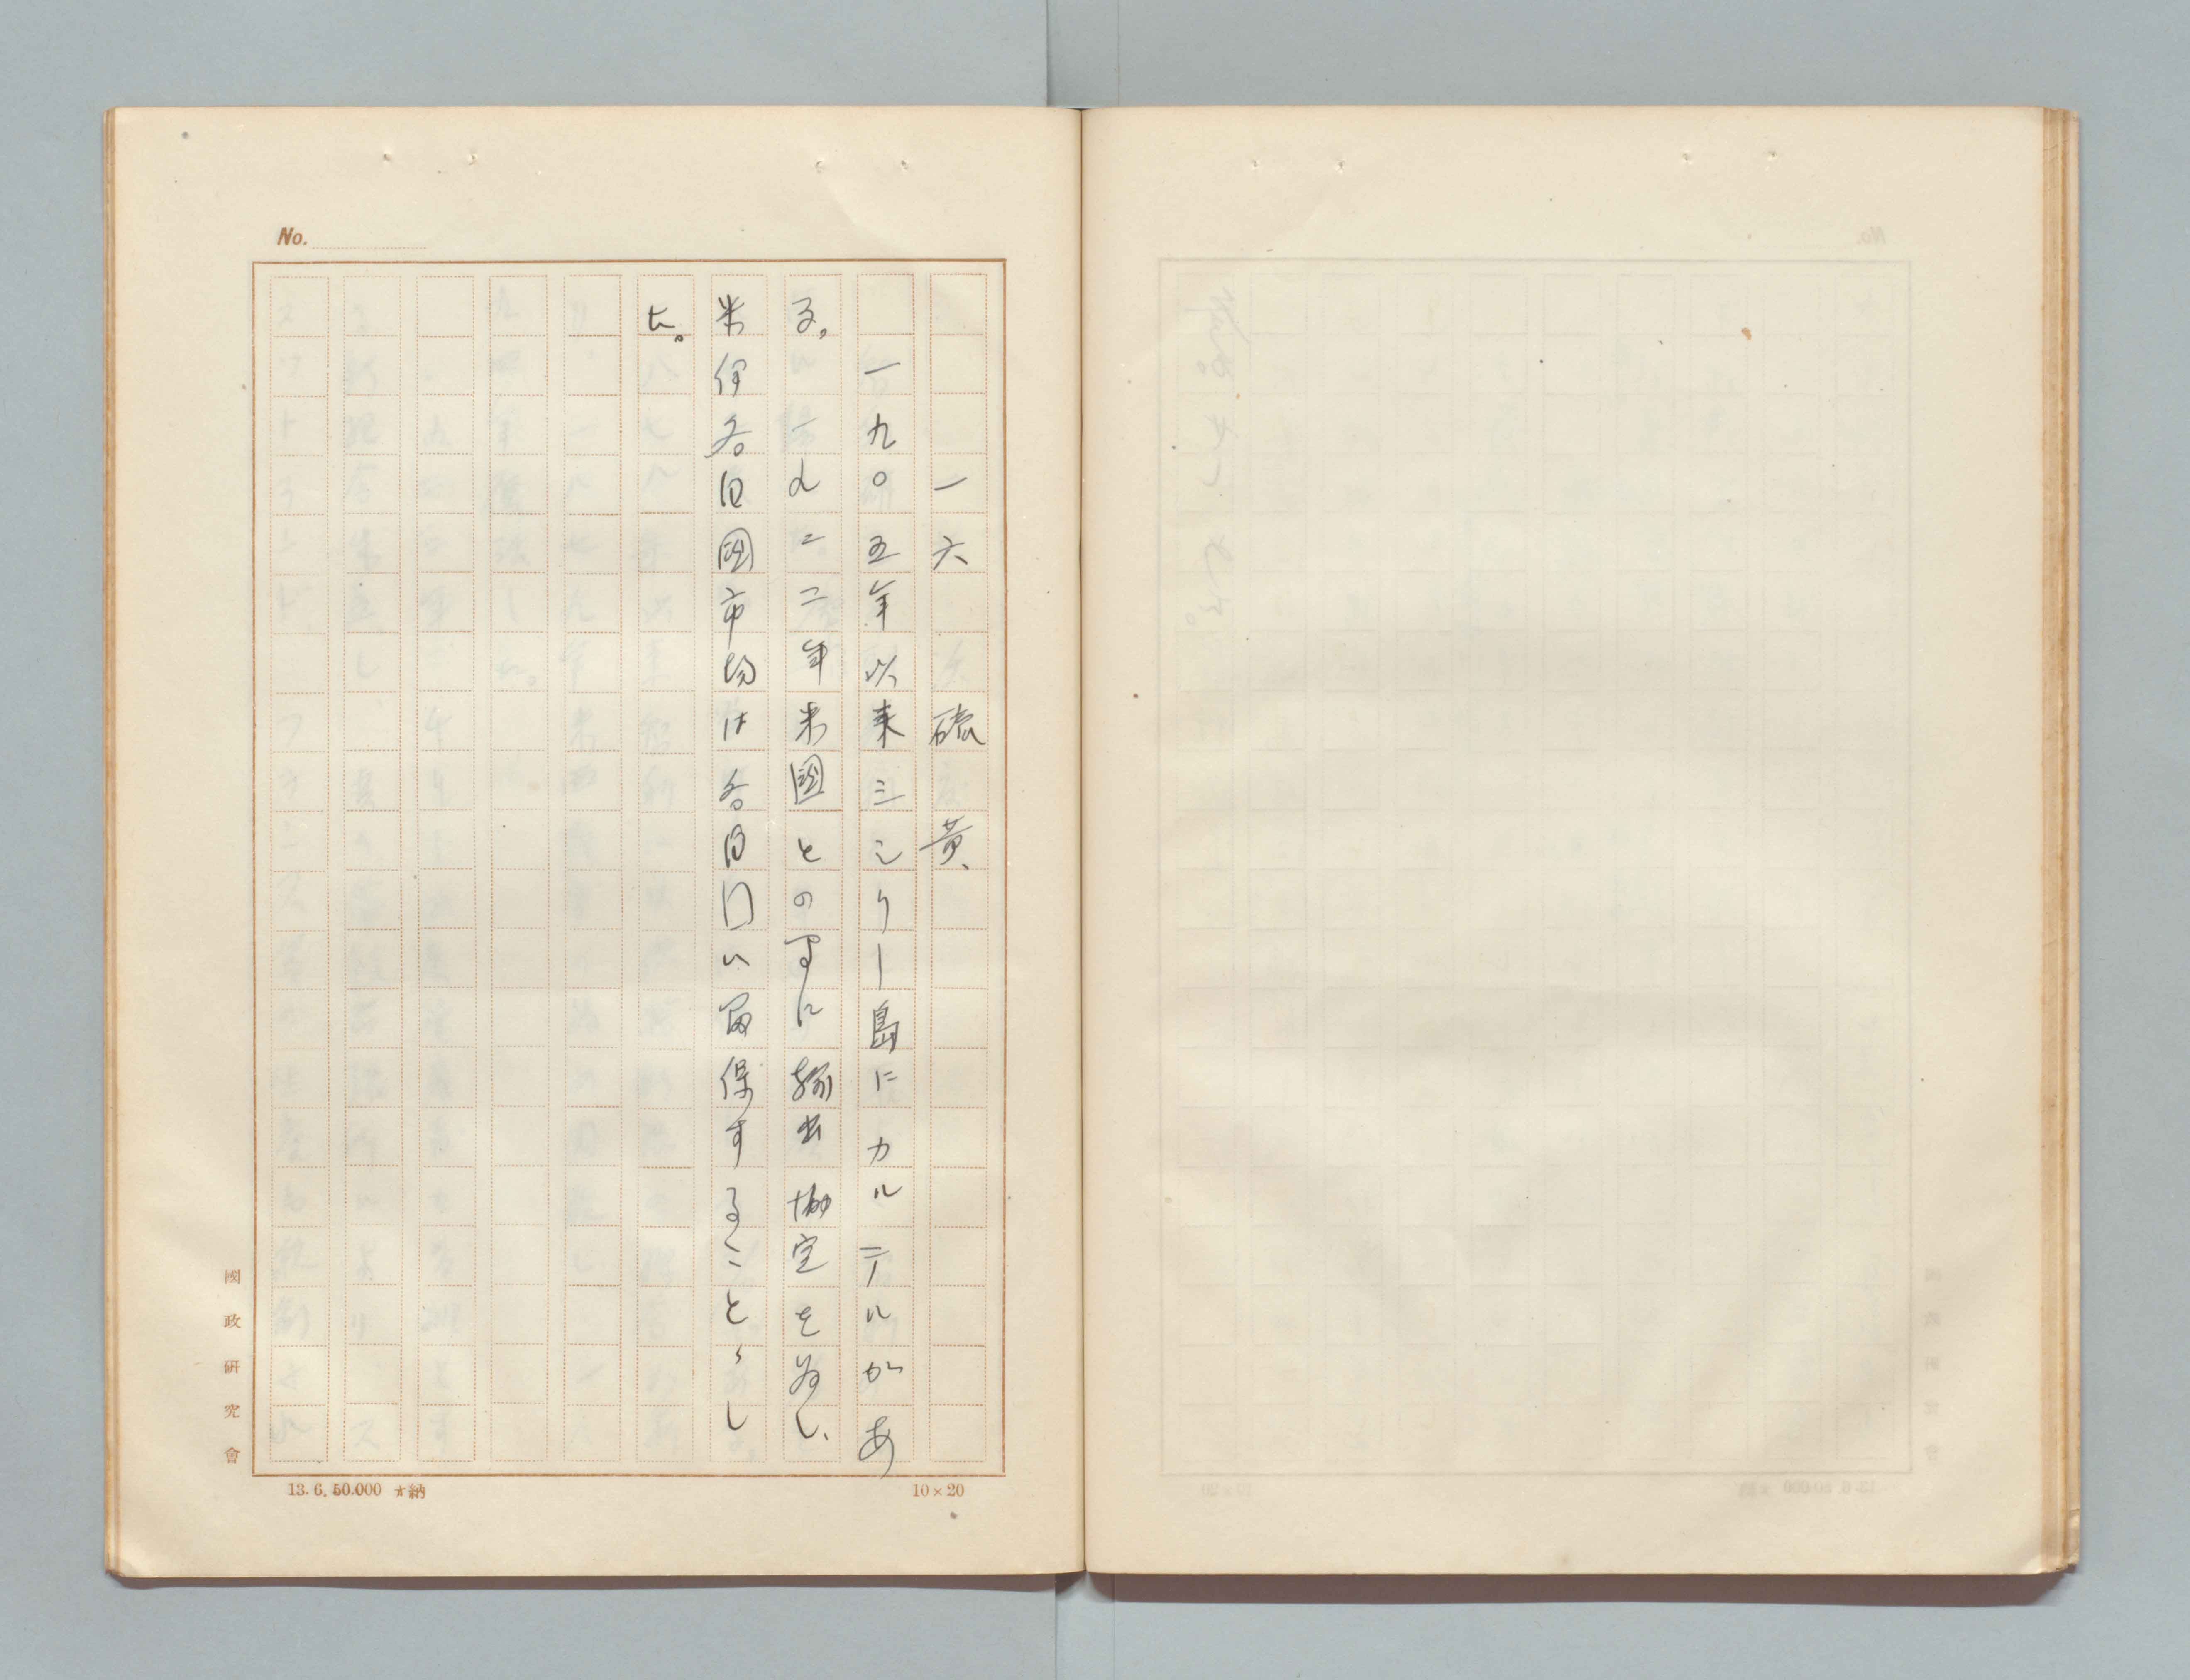 No.
一六　硫黄、
一九〇五年以来シシリー島にカルテルがあ
る。一九二二年米國との間に輸出協定を為し、
米伊各自國市場は各自国い留保することゝし
た。
國政研究會
13. 6. 50.000 納
10×20